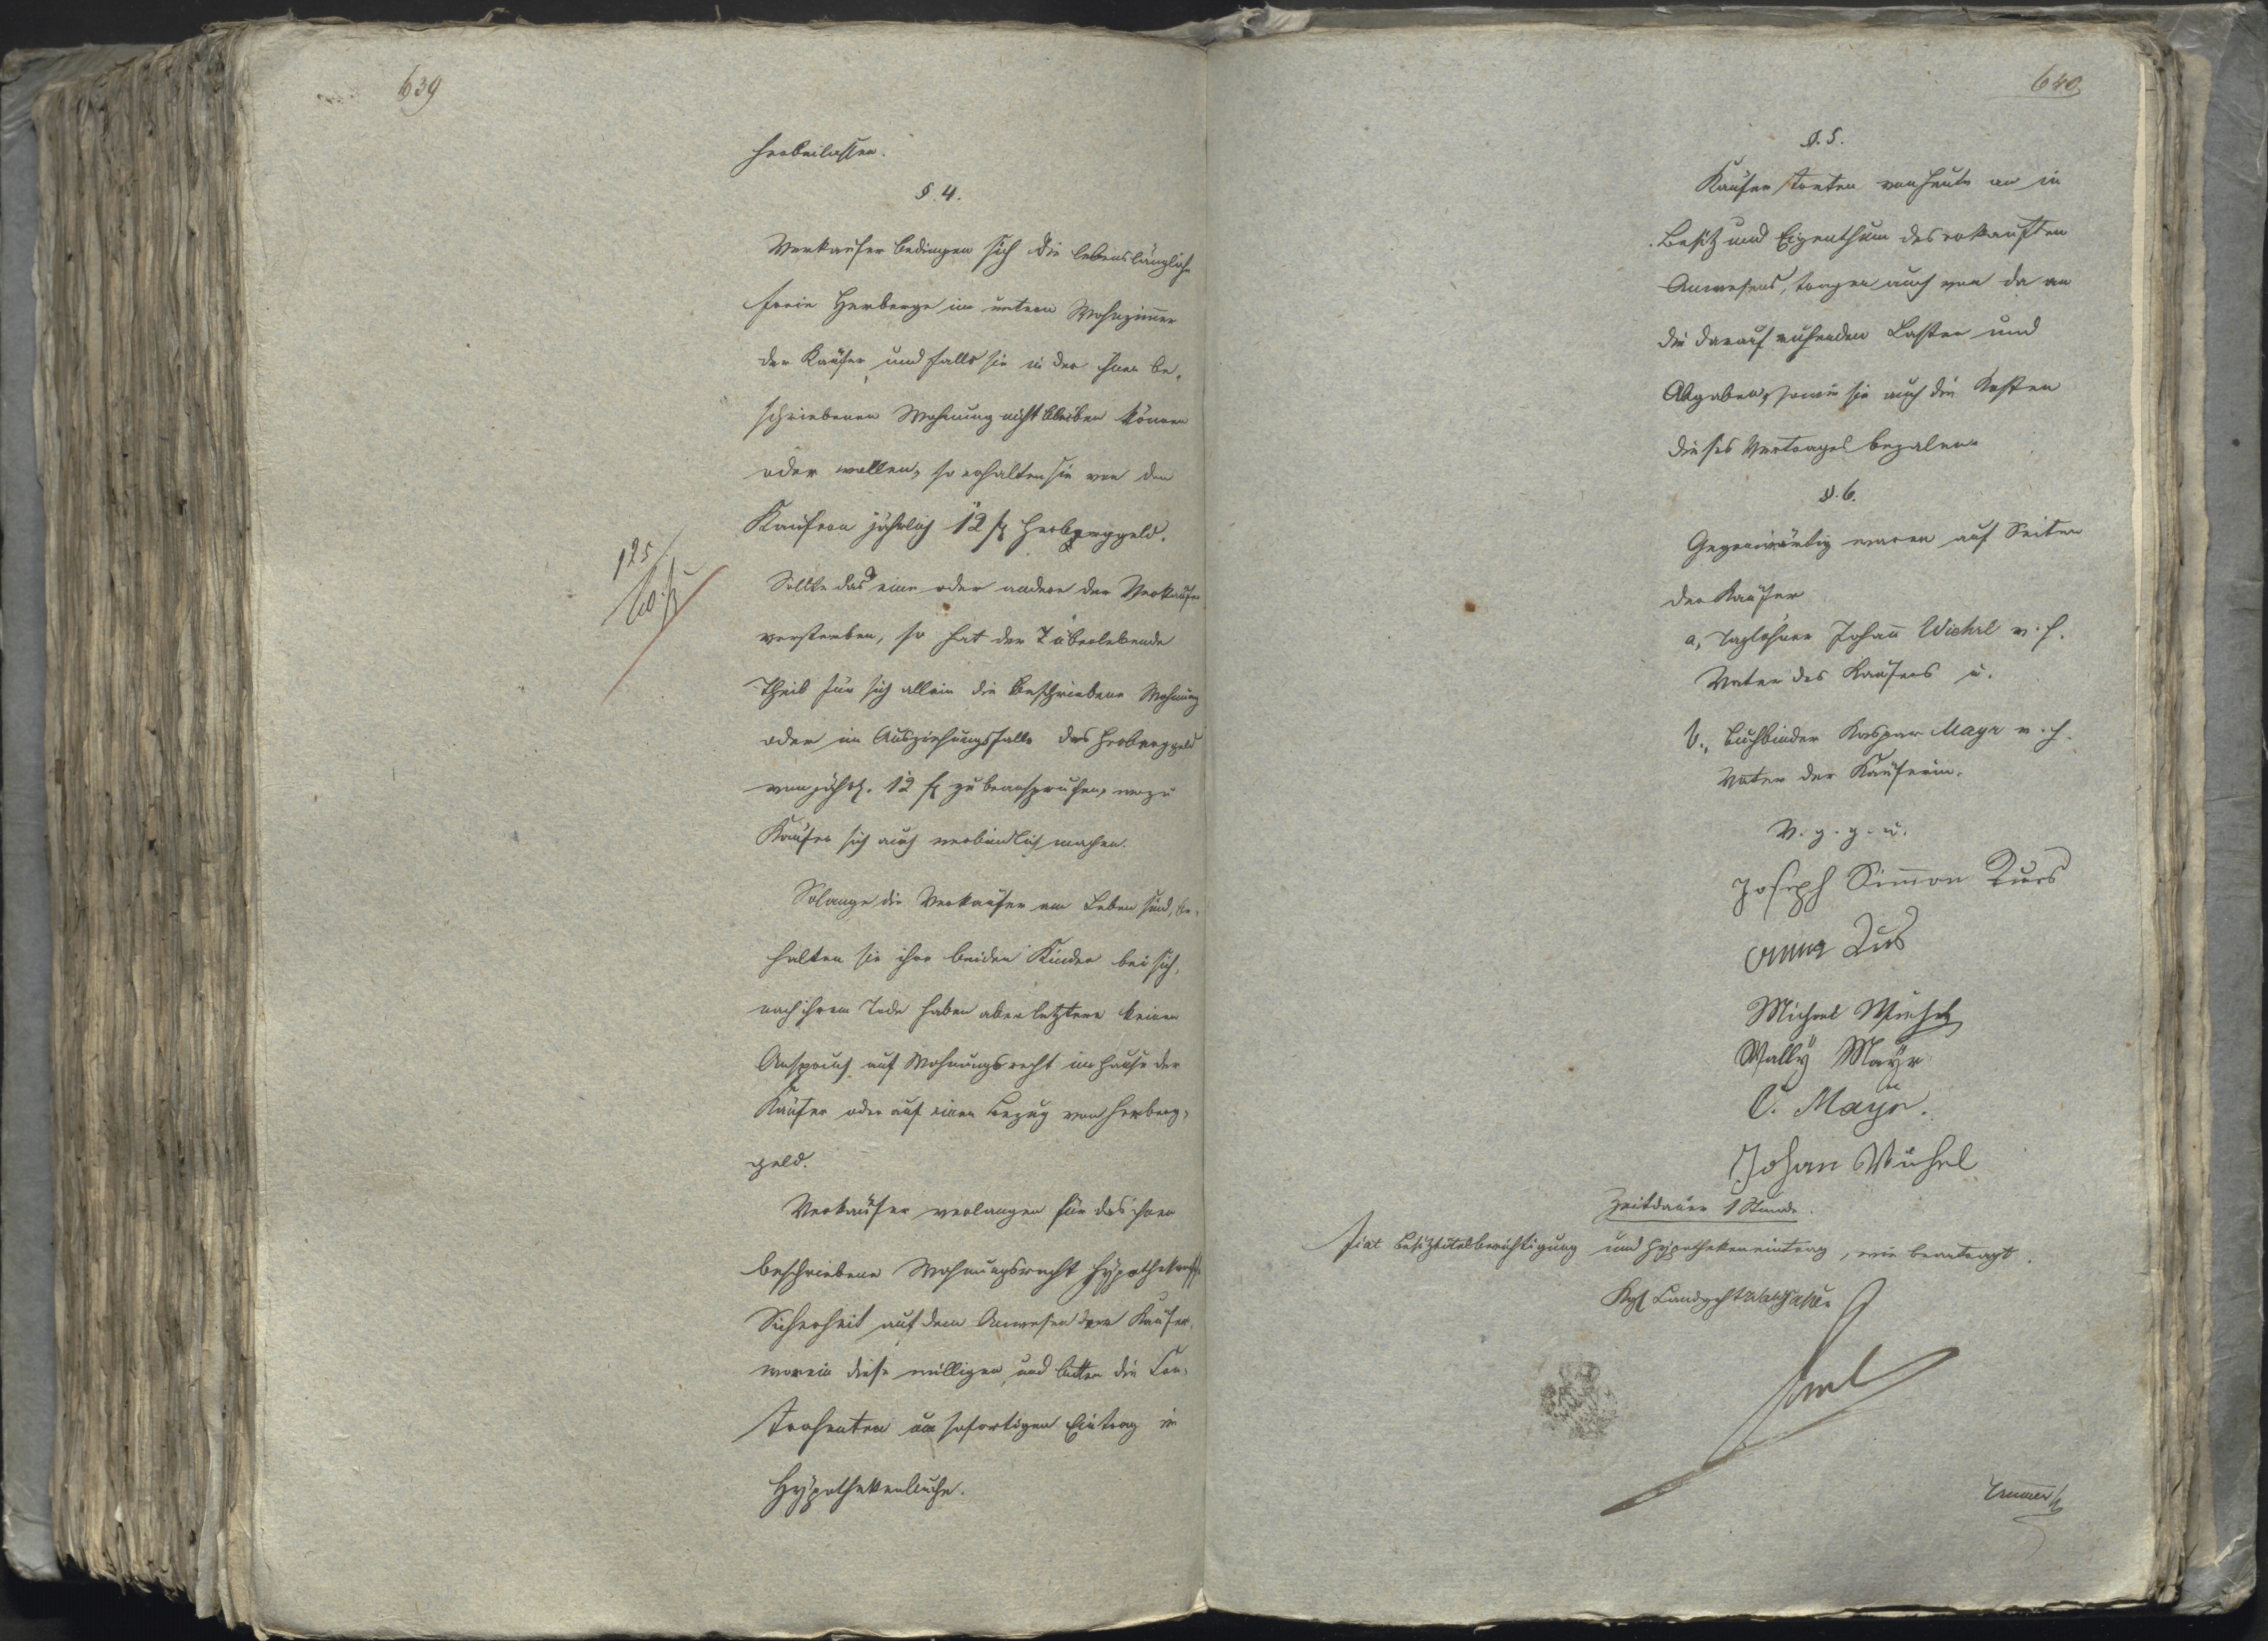 639
herbeilassen.
§. 4.
Verkaufer bedingen sich die lebenslängliche
freie Herberge im untern Wohnzimmer
der Käufer, und falls sie in der ihnen be-
schriebenen Wohnung nicht bleiben können
oder wollen, so erhalten sie von den
Käufern jährlich 12 fl Herberggeld.
125
Sollte das eine oder andere der Verkäufer
versterben, so hat der überlebende
Theil für sich allein die beschriebene Wohnung
oder im Ausziehungsfalle das Herberggeld
von jährl. 12 fl zu beanspruchen, wozu
Käufer sich auch verbindlich machen.
Solange die Verkäufer am Leben sind, be-
halten sie ihre beiden Kinder bei sich,
nach ihrem Tode haben aber letztere keinen
Anspruch auf Wohnungsrecht im Hause der
Käufer oder auf einen Bezug von Herberg-
geld.
Verkäufer verlangen für das ihnen
beschriebene Wohnungsrecht hypothekarische
Sicherheit auf dem Anwesen der Käufer,
worein diese willigen, und bitten die Con-
trahenten um sofortigen Eintrag im
Hypothekenbuche.
640
§. 5.
Käufer treten von heute an in
Besitz und Eigenthum des erkauften
Anwesens, tragen auch von da an
die darauf ruhenden Lasten und
Abgaben, sowie sie auch die Kosten
dieses Vertrages bezalen.
§. 6.
Gegenwärtig waren auf Seiten
der Käufer
a, Taglöhner Johann Wiehrl v. h.
Vater des Käufers u.
b., Buchbinder Kaspar Mayr v. h.
Vater der Käuferin.
V. g. g. u.
Joseph Simon
Anna
Michael
Wally Mayr
C. Mayr.
Johan
Zeitdauer 1 Stunde.
Fiat Besiztitelberichtigung und Hypothekeneintrag, wie beantragt.
Kgl Landgcht